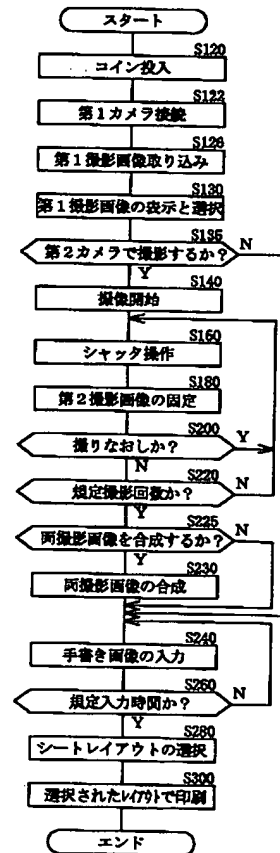 スタート
S120
コイン投入
S122
第1カメラ接続
S126
第1撮影画像取り込み
S130
第1撮影画像の表示と選択
S135
第2カメラで撮影するか?
N
Y
S140
撮像開始
S160
シャッタ操作
S180
第2撮影画像の固定
S200
撮りなおしか?
Y
N
S220
規定撮影回数か?
N
Y
S225
両撮影画像を合成するか?
N
Y
S230
両撮影画像の合成
S240
手書き画像の入力
S260
規定入力時間か?
N
Y
S280
シートレイアウトの選択
S300
選択されたレイアウトで印刷
エンド